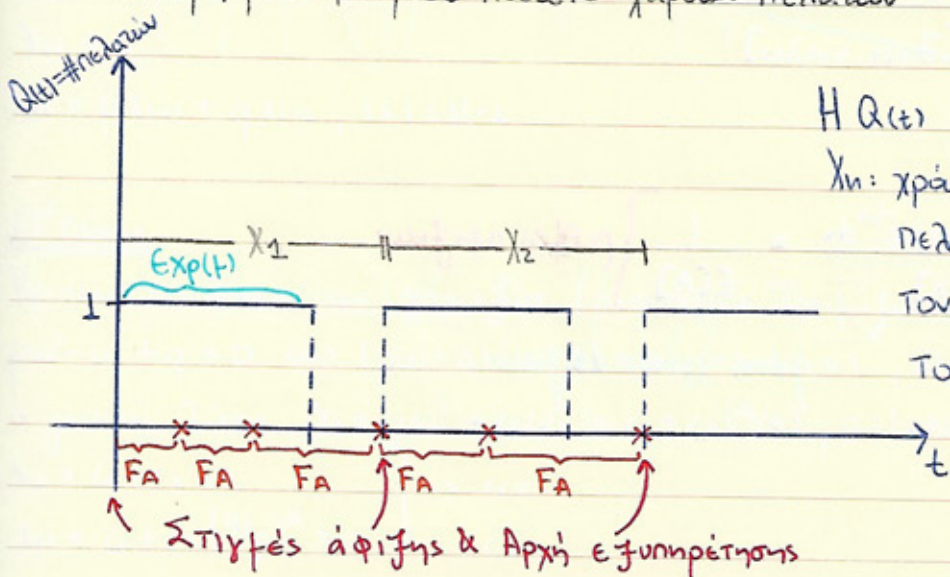 Q(t)=#πελατών
Η Q(t)
Xn: χρό
πελ
τον
το
X1 X2
Exp(μ)
1
FA FA FA FA FA
t
Στιγμές άφιξης & Αρχή εξυπηρέτησης